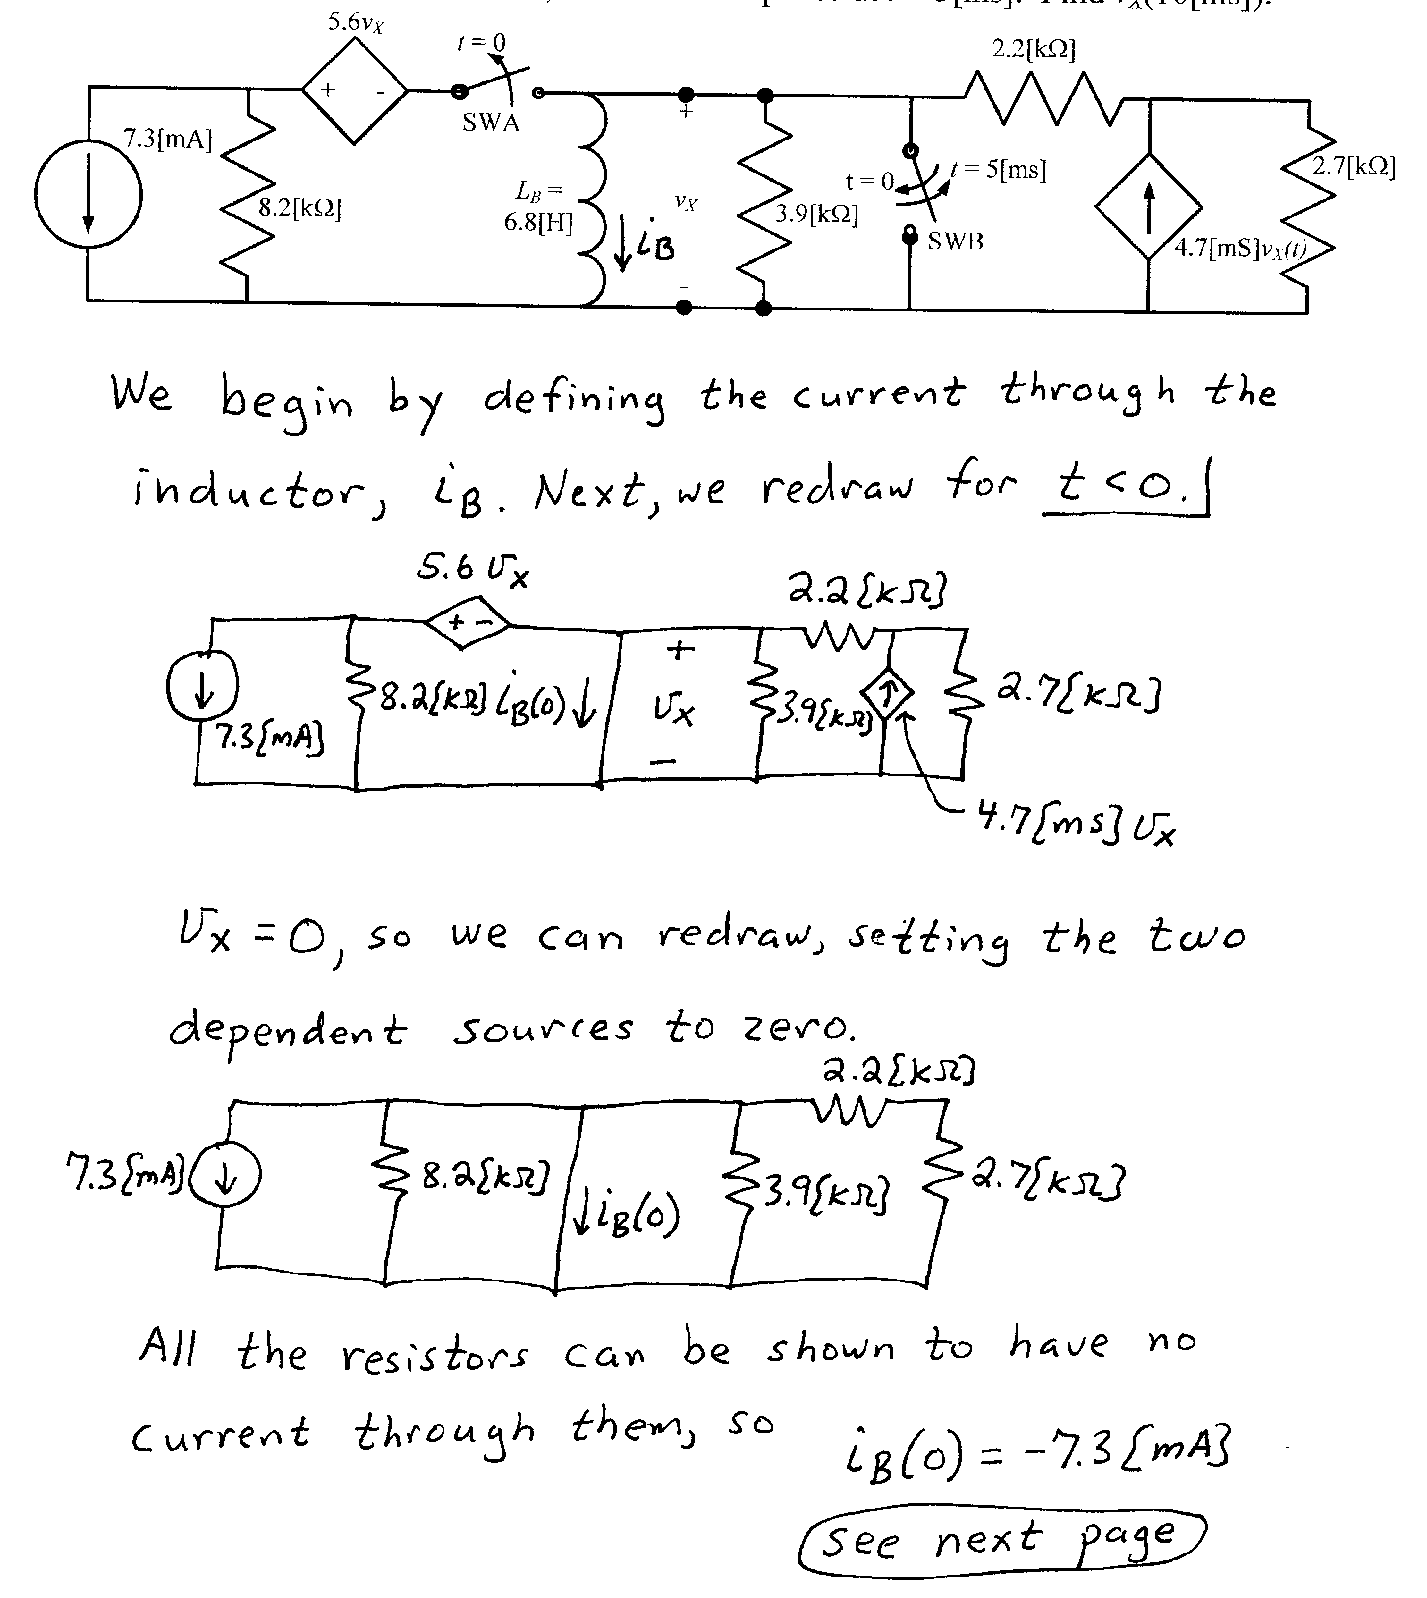 5.6vX
t = 0
2.2[kΩ]
7.3[mA]
+ -
SWA
+
8.2[kΩ]
LB =
6.8[H]
iB
vX
-
3.9[kΩ]
t = 0
t = 5[ms]
SWB
4.7[mS]vX(t)
2.7[kΩ]
We begin by defining the current through the
inductor, iB. Next, we redraw for t < 0.
5.6 vX
2.2[kΩ]
+ -
7.3[mA]
8.2[kΩ]
iB(0)
+
vX
-
3.9[kΩ]
2.7[kΩ]
4.7[ms] vX
vX = 0, so we can redraw, setting the two
dependent sources to zero.
2.2[kΩ]
7.3[mA]
8.2[kΩ]
iB(0)
3.9[kΩ]
2.7[kΩ]
All the resistors can be shown to have no
current through them, so iB(0) = -7.3[mA]
see next page